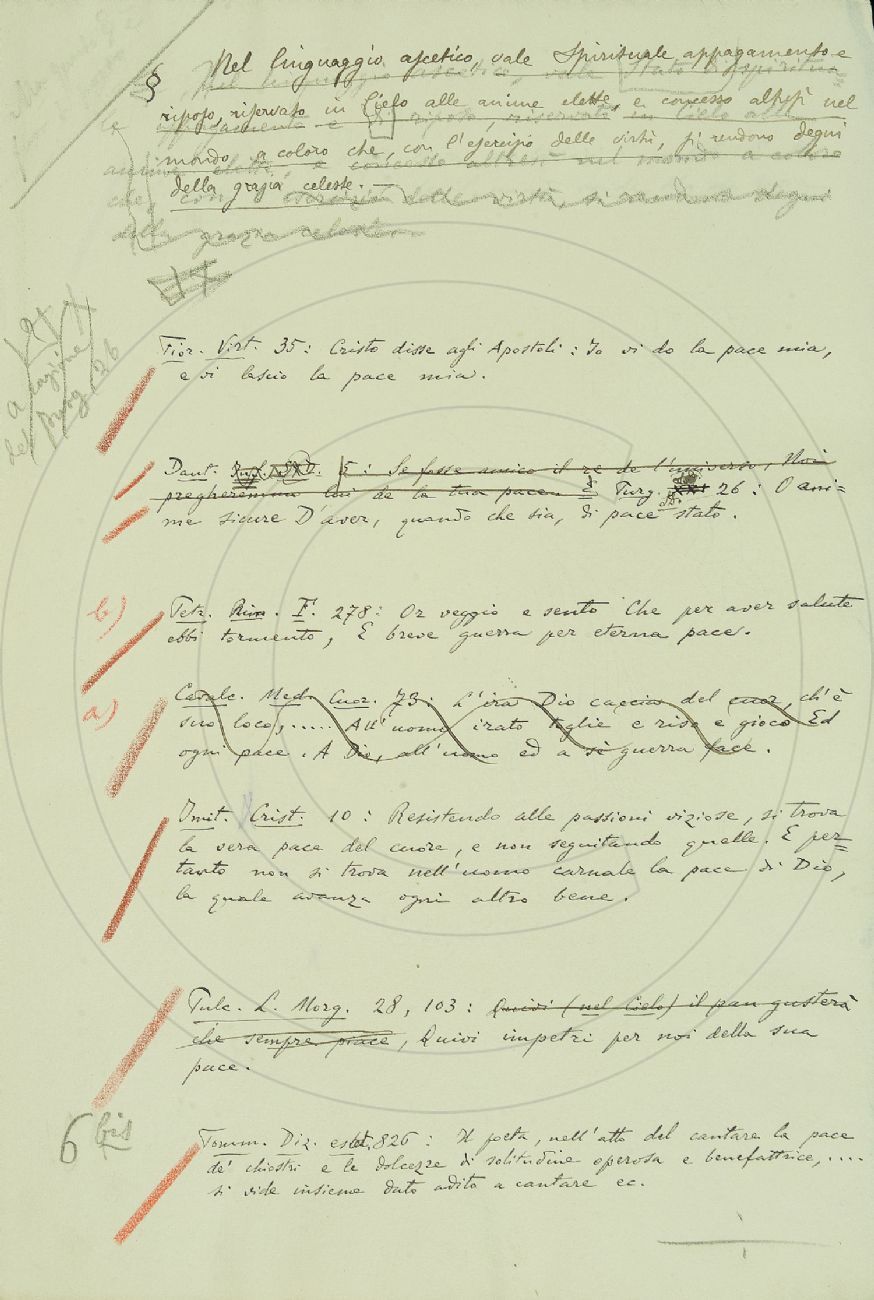 § Nel linguaggio ascetico, vale Spirituale appagamento e
riposo, riservato in Cielo alle anime elette, e concesso altresì nel
mondo a coloro che, con l'esercizio delle virtù, si rendono degni
della grazia celeste. —
che, con esercizio delle virtù, si rendono degni
della grazia celeste.
Fior. Virt. 35: Cristo disse agli Apostoli: Io vi do la pace mia,
e vi lascio la pace mia.
a
del Purg. 26
Dant. Inf. 5: Se fosse amico il re de l'universo, Noi
pregheremmo lui de la tua pace. Purg. 26: O ani=
me sicure D'aver, quando che sia, di pace stato.
b) Petr. Rim. I. 278: Or veggio e sento Che per aver salute
ebbi tormento, E breve guerra per eterna pace.
a) Cavalc. Med. Cuor. 73: L'ira Dio caccia del cuor, ch'è
suo loco, ..... All'uomo irato toglie e riso e gioco Ed
ogni pace. A Dio, all'uomo ed a sè guerra face.
Imit. Crist. 10: Resistendo alle passioni viziose, si trova
la vera pace del cuore, e non seguitando quelle. E per=
tanto non si trova nell'uomo carnale la pace di Dio,
la quale avanza ogni altro bene.
Pulc. L. Morg. 28, 103: Quivi (nel Cielo) il pan gusterà
che sempre piace, Quivi impetri per noi della sua
pace.
6 bis
Tomm. Diz. estet. 826: Il poeta, nell'atto del cantare la pace
de' chiostri e le dolcezze di solitudine operosa e benefattrice, ....
si vide insieme dato adito a cantare ec.